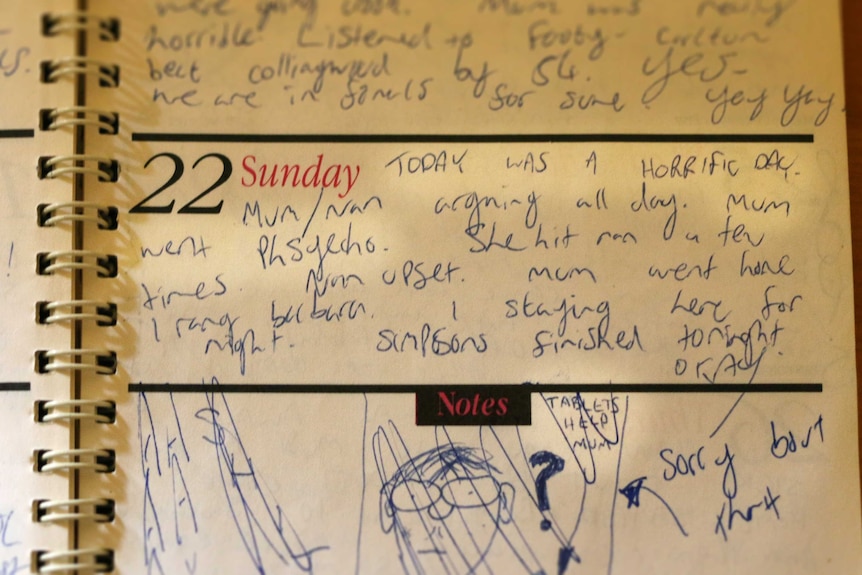 were going                Mum was really
horrible. Listened to Footy- Carlton
beat collingwood by 54. Yes-
we are in finals for sure. Yay Yay.
22 Sunday TODAY WAS A HORRIFIC DAY.
Mum/Nan arguing all day. Mum
went Phsyecho. She hit nan a few
times. Nan upset. Mum went home
I rang barbara. I staying here for
night. SIMPSONS finished tonight
OKAY
Notes
TABLETS
HELP
MUM
?
Sorry bout
that